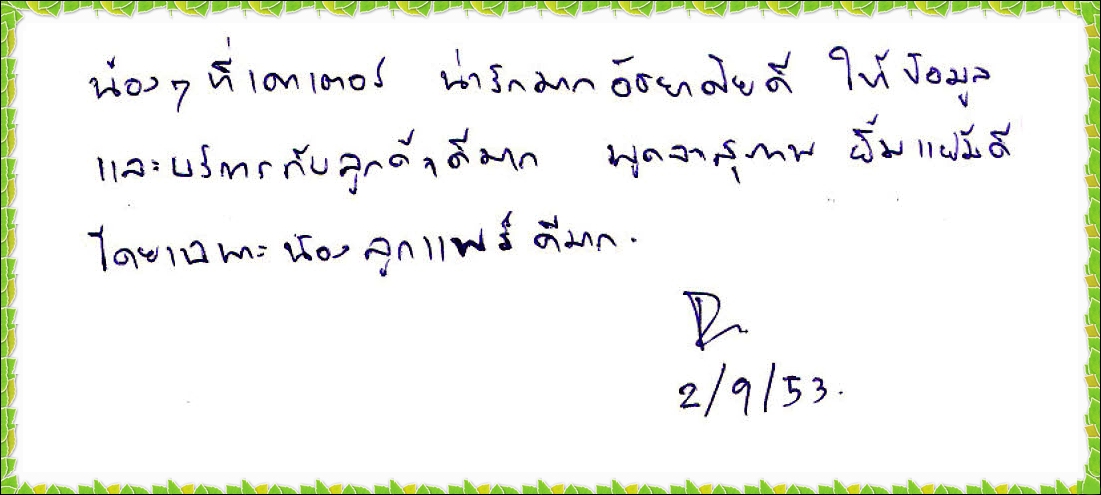 น้องๆ ที่เคาเตอร์ น่ารักมาก อัธยาศัยดี ให้ข้อมูล
และบริการกับลูกค้าดีมาก พูดจาสุภาพ ยิ้มแย้มดี
โดยเฉพาะน้องลูกแพร์ ดีมาก.
2/9/53.